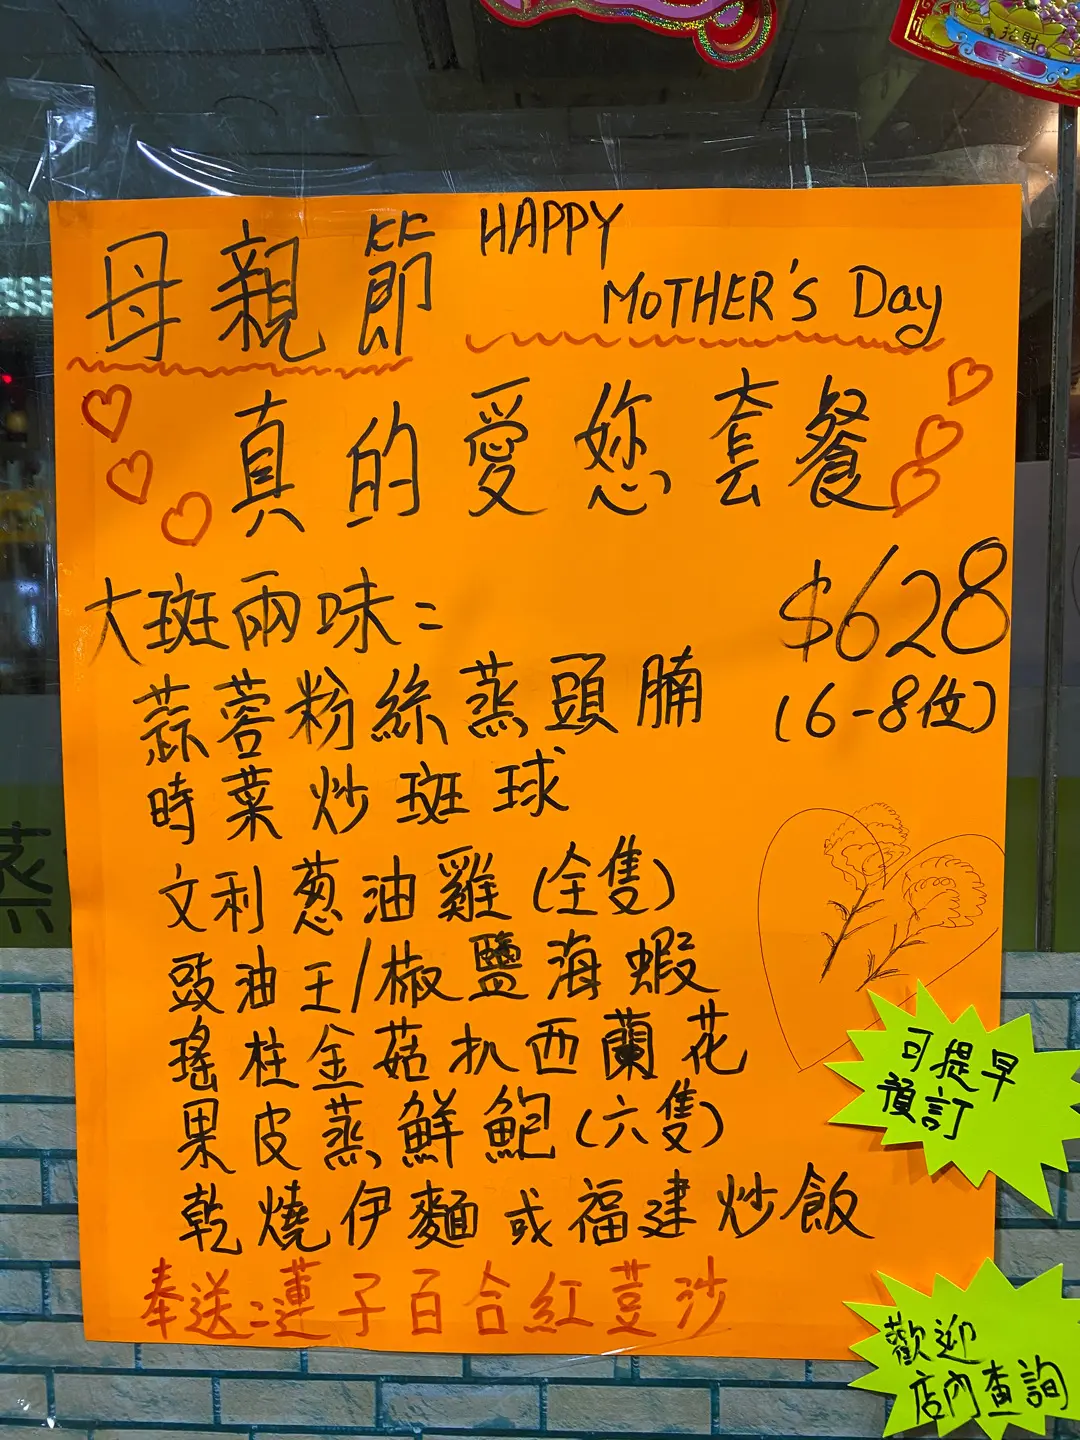 招財
母親節 HAPPY
MOTHER'S Day
真的愛妳套餐
大斑兩味:
$628
(6-8位)
蒜蓉粉絲蒸頭腩
時菜炒斑球
文利葱油雞(全隻)
豉油王/椒鹽海蝦
瑤柱金菇扒西蘭花
果皮蒸鮮鮑(六隻)
乾燒伊麵或福建炒飯
奉送:蓮子百合紅荳沙
可提早
預訂
歡迎
店內查詢
蒸